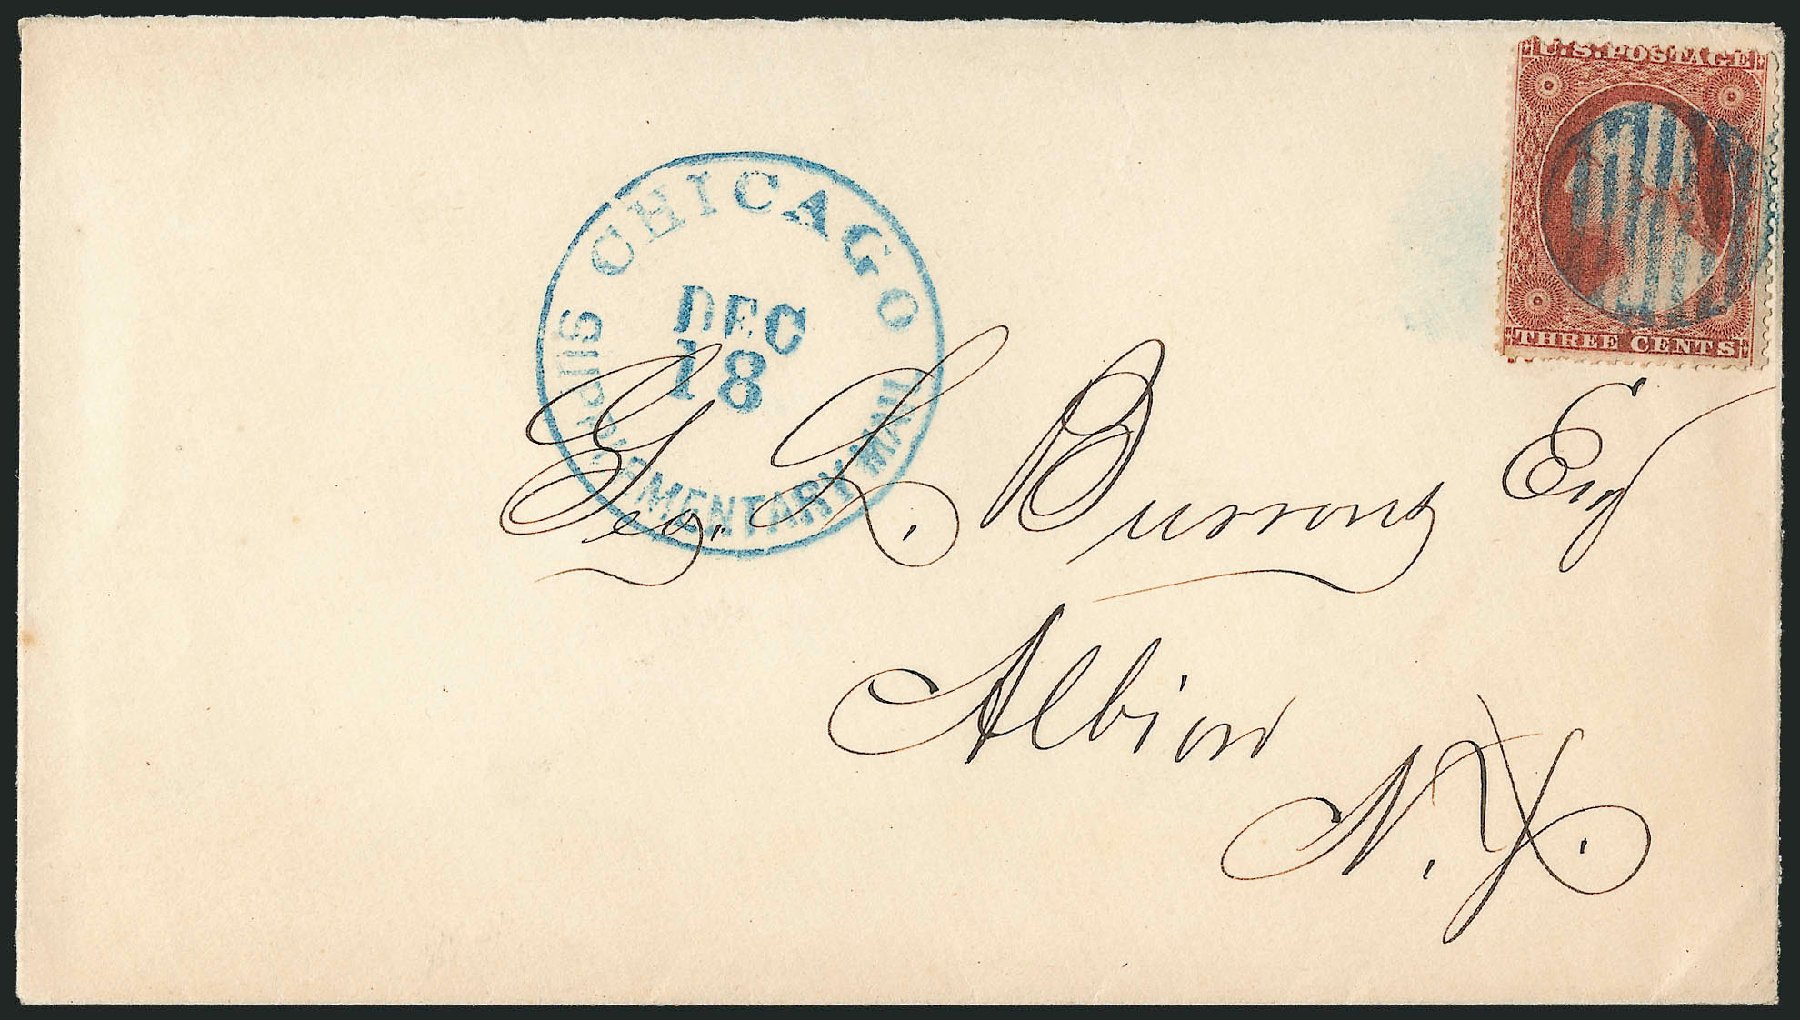 U.S. POSTAGE
THREE CENTS
CHICAGO
DEC
18
SUPPLEMENTARY MAIL
Geo. L. Burrows Esq
Albion
N.Y.